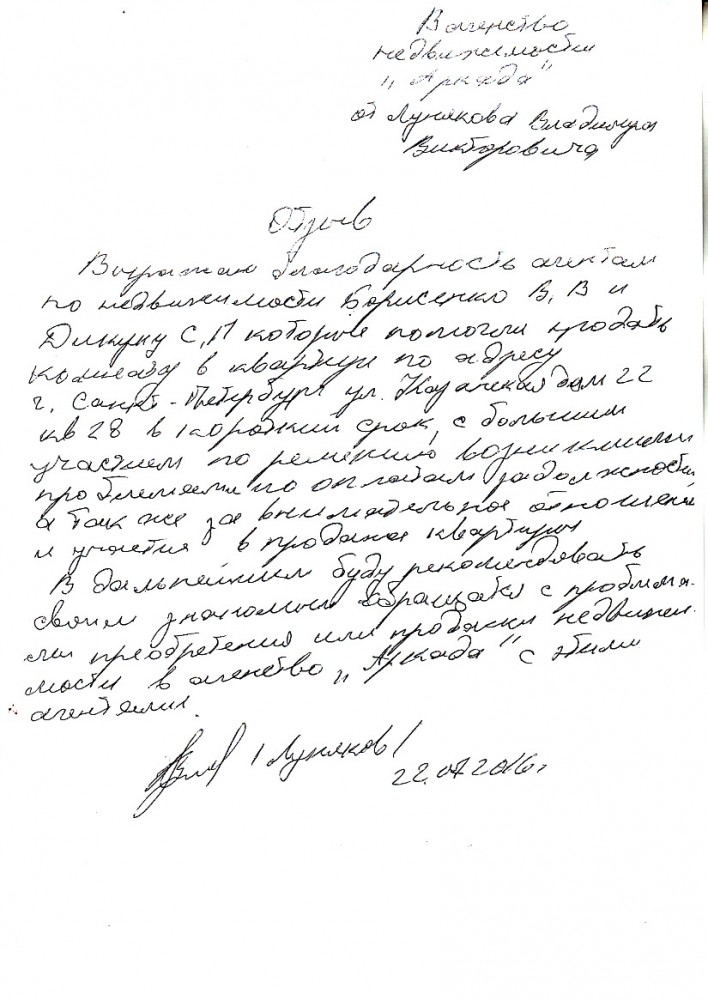 В агенство
недвижимости
"Аркада"
от Лунякова Владимира
Викторовича
Отзыв
Выражаю благодарность агентам
по недвижимости Борисенко В, В и
Дикуну С, П которые помогли продать
комнату в квартире по адресу
г, Санкт-Петербург ул. Казанская дом 22
кв 28 в короткий срок, с большим
участием по решению возникшими
проблемами по оплатам задолжности
а так же за внимательное отношение
и участия в продаже квартиры
В дальнейшем буду рекомендовать
своим знакомым обращатся с проблема-
ми преобретения или продажи недвижи-
мости в агенство "Аркада" с этими
агентами.
/Луняков/
22.07.2016 г